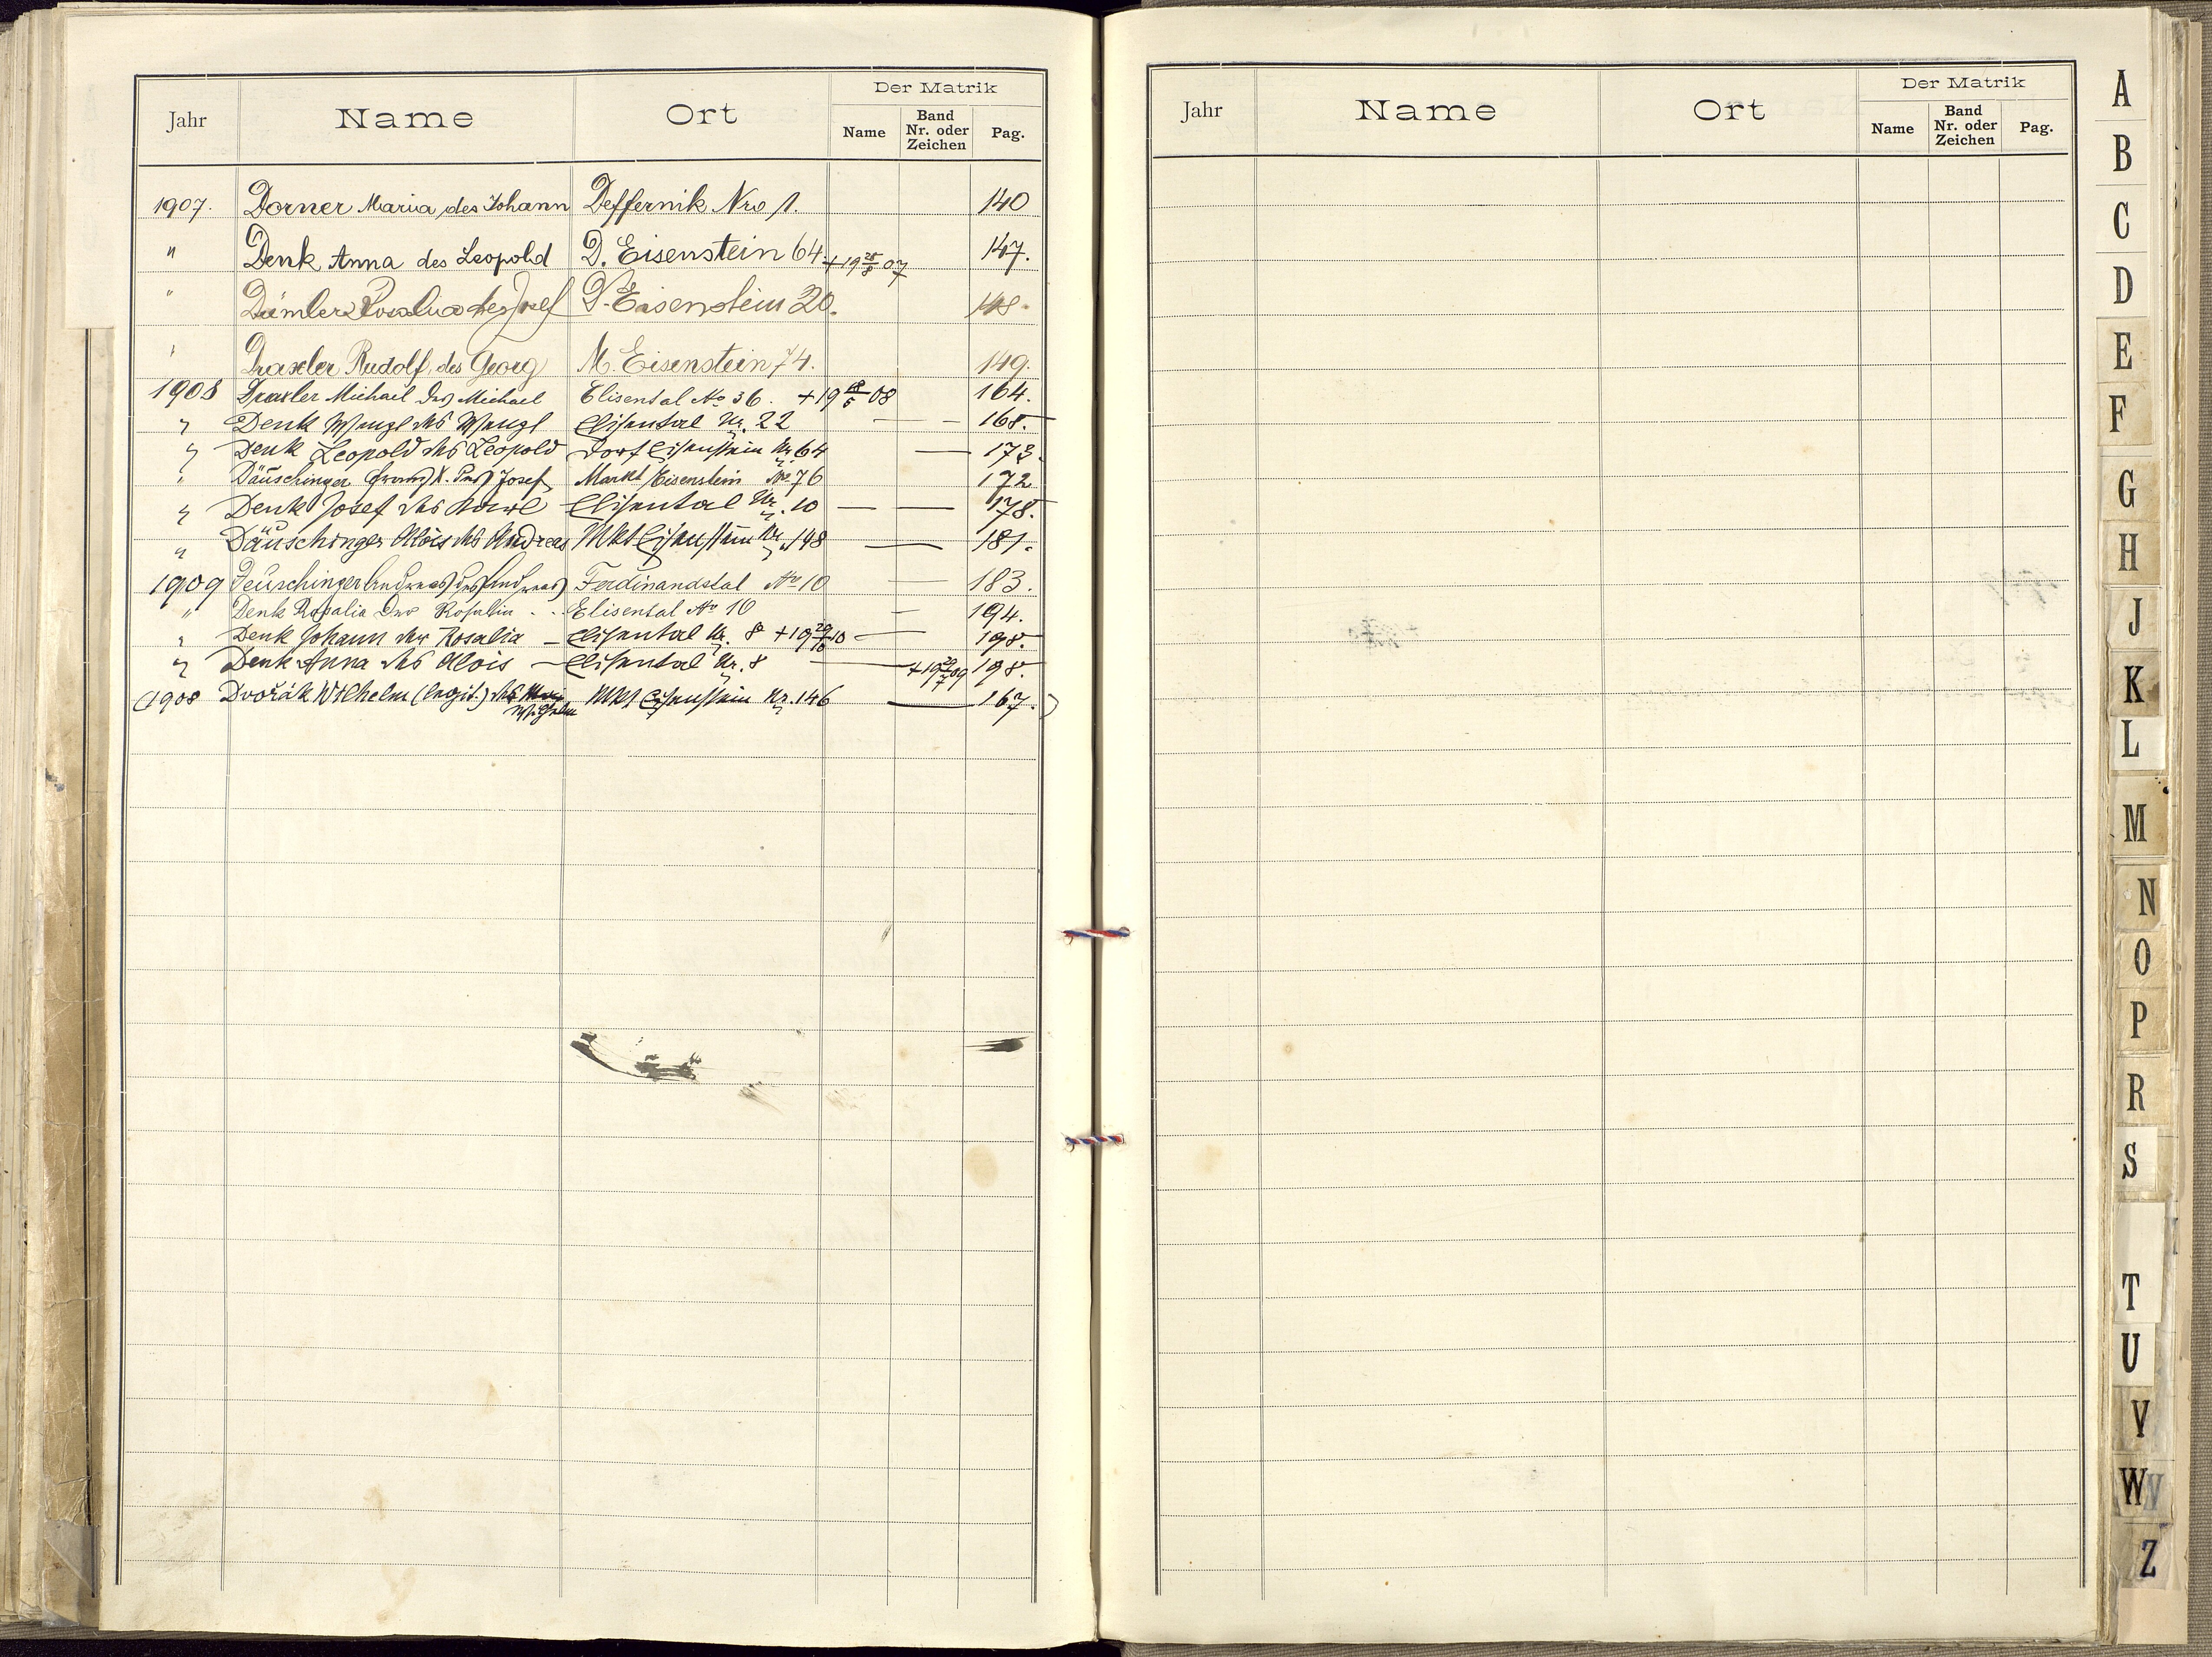 Jahr Name Ort Der Matrik
Name Band Nr. oder Zeichen Pag.
1907. Dorner Maria des Johann Deffernik Nro 1. 140
" Denk Anna des Leopold D. Eisenstein 64 +19 25/8 07 147.
" Dümler Rosalia des Josef D. Eisenstein 20. 148.
" Draxler Rudolf des Georg M. Eisenstein 74. 149.
1908 Draxler Michael des Michael Elisental No 36. +19 /5 08 164.
" Denk Wenzl des Wenzl Elisental Nr. 22 — — 168.
" Denk Leopold des Leopold Dorf Eisenstein Nr. 64 — 173.
" Däuschinger Franz X. des Josef Markt Eisenstein No 76 172
" Denk Josef des Karl Elisental Nr. 10 — — 178.
" Däuschinger Alois des Andreas Mkt Eisenstein Nr. 148 — 181.
1909 Deuschinger Andreas des Andreas Ferdinandstal No 10 — 183.
" Denk Rosalia der Rosalia Elisental No 10 — 194.
" Denk Johann der Rosalia – Elisental Nr. 8 +19 10 — 198.
" Denk Anna des Alois – Elisental Nr. 8 — +19 29/7 09 198.
(1908 Dvořák Wilhelm (legit.) des Wilhelm Mkt Eisenstein Nr. 146 — 167.)
Jahr Name Ort Der Matrik
Name Band Nr. oder Zeichen Pag.
A
B
C
D
E
F
G
H
J
K
L
M
N
O
P
R
S
T
U
V
W
Z